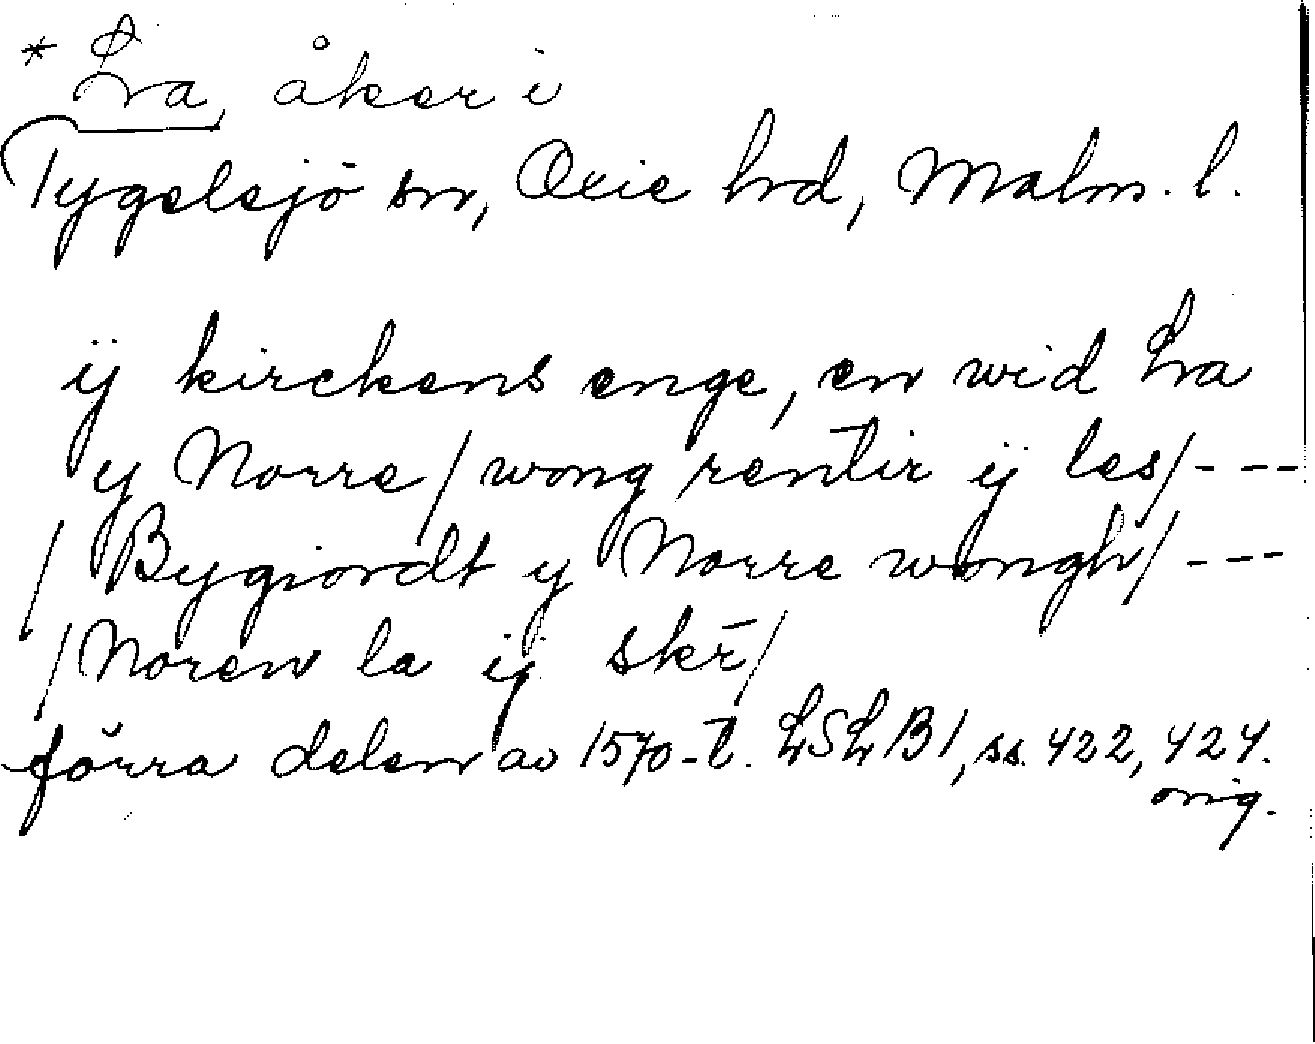 * La, åker i
Tygelsjö sn, Oxie hd, Malm. l.
ij kirckens enge, en wid La
y Norre / wong rentir ij les / - - -
/ Bygiordt y Norre wongh / - - -
/ Noren la ij skr̄ /
förra delen av 1570-t. LSLB1, ss. 422, 424.
orig.